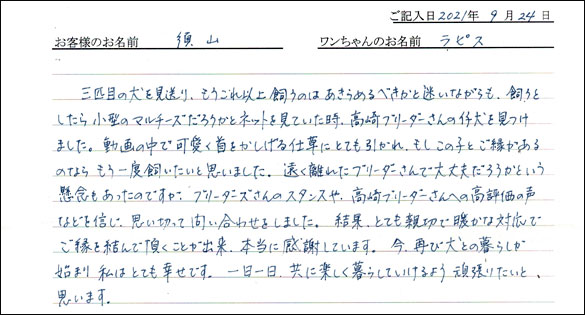 ご記入日2021年 9月24日
お客様のお名前 須山 ワンちゃんのお名前 ラピス
三匹目の犬を見送り、もうこれ以上飼うのはあきらめるべきかと迷いながらも、飼うと
したら小型のマルチーズだろうかとネットを見ていた時、高崎ブリーダーさんの仔犬を見つけ
ました。動画の中で可愛く首をかしげる仕草にとても引かれ、もしこの子とご縁がある
のならもう一度飼いたいと思いました。遠く離れたブリーダーさんで大丈夫だろうかという
懸念もあったのですが、ブリーダーズさんのスタンスや、高崎ブリーダーさんへの高評価の声
などを信じ、思い切って問い合わせをしました。結果、とても親切で暖かな対応で
ご縁を結んで頂くことが出来、本当に感謝しています。今、再び犬との暮らしが
始まり、私はとても幸せです。一日一日、共に楽しく暮らしていけるよう頑張りたいと、
思います。